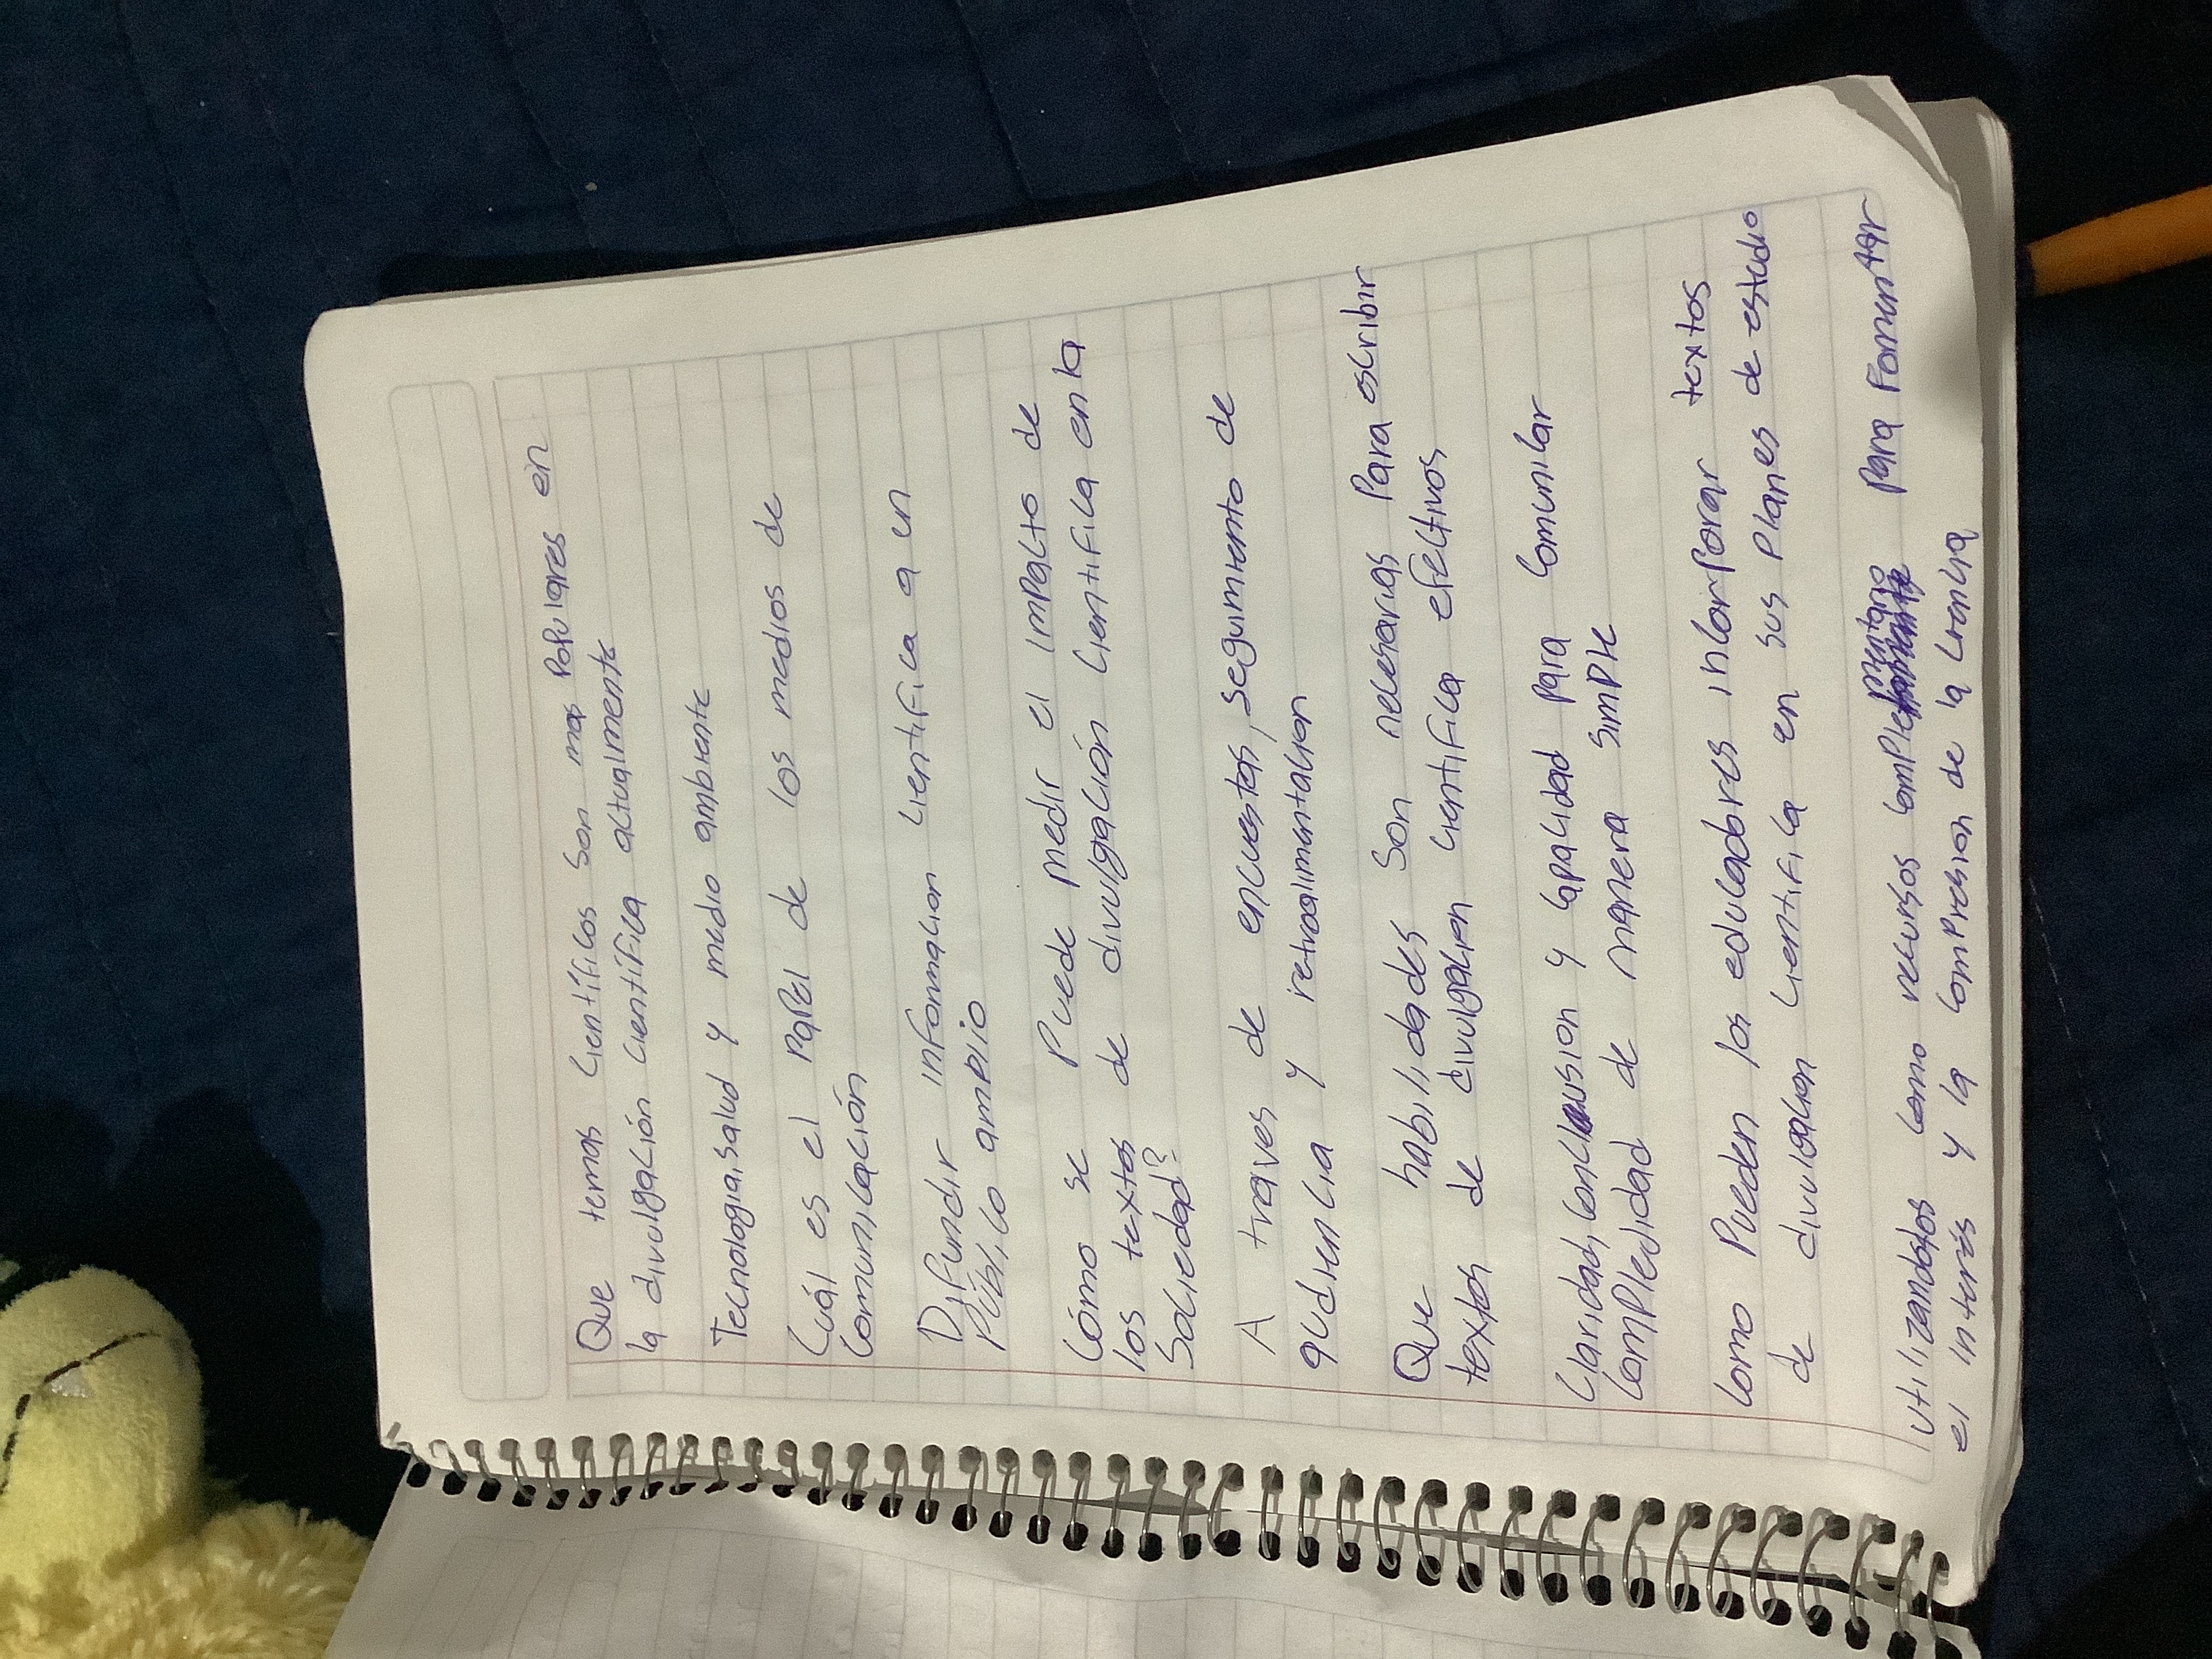 Que temas científicos son mas populares en
la divulgación científica actualmente
Tecnologia, salud y medio ambiente
Cuál es el papel de los medios de
comunicación
Difundir informacion cientifica a en
público amplio
Cómo se puede medir el impacto de
los textos de divulgación cientifica en la
sociedad?
A traves de encuestas, seguimiento de
audiencia y retroalimentacion
Que habilidades son necesarias para escribir
textos de divulgacion cientifica efectivos
Claridad, conclusion y capacidad para comunicar
complejidad de manera simple
Como pueden los educadores incorporar textos
de divulgacion cientifica en sus planes de estudio
utilizandolos como recursos complementario para fomentar
el interés y la compresion de la ciencia